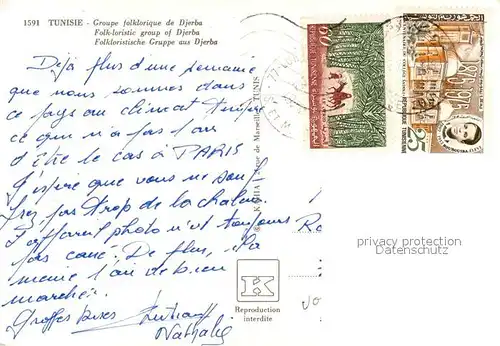 1591 TUNISIE - Groupe folklorique de Djerba
Folk-loristic group of Djerba
Folkloristische Gruppe aus Djerba
Déjà plus d'une semaine
que nous sommes dans
ce pays au climat tempéré
ce qui n'a pas l'air
d'être le cas à PARIS
J'espère que vous ne souf-
frez pas trop de la chaleur.
L'appareil photo n'est toujours
pas cassé. De plus, il a
même l'air de bien
marcher.
Grosses bises
Nathalie
KAHIA rue de Marseille TUNIS
60
25
REPUBLIQUE TUNISIENNE
K
Reproduction
interdite
privacy protection
Datenschutz